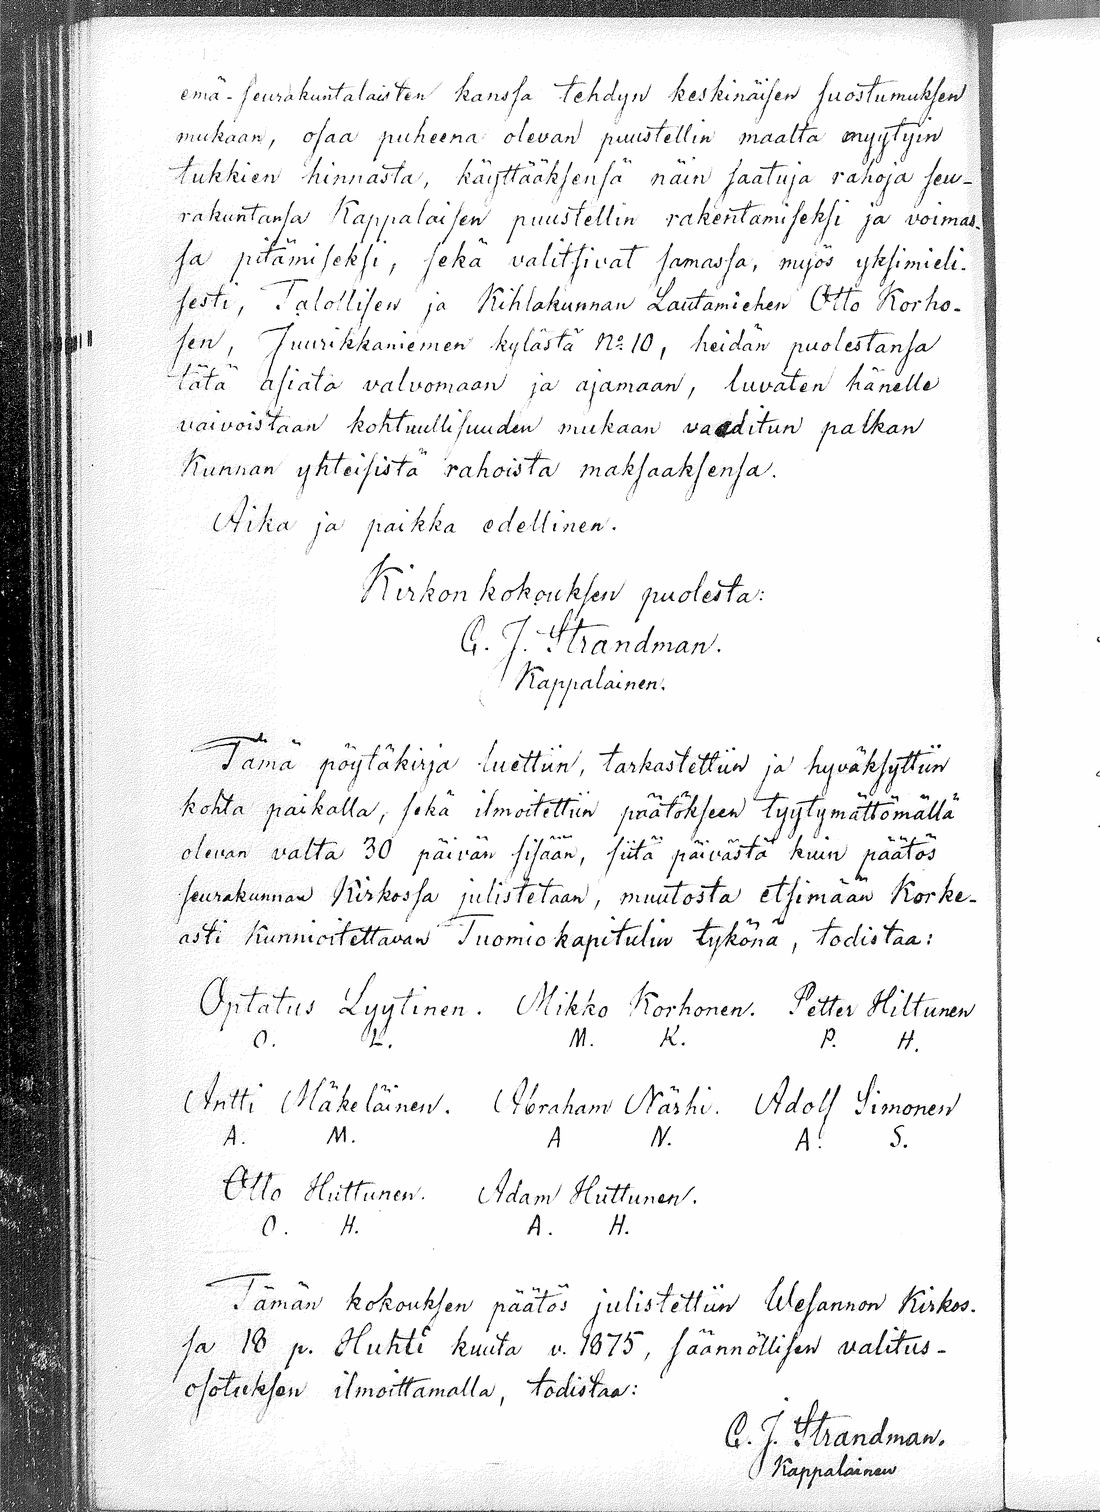 emä-seurakuntalaisten kanssa tehdyn keskinäisen suostumuksen
mukaan, osaa puheena olevan puustellin maalta myytyin
tukkien hinnasta, käyttääksensä näin saatuja rahoja seu-
rakuntansa Kappalaisen puustellin rakentamiseksi ja voimas-
sa pitämiseksi, sekä valitsivat samassa, myös yksimieli-
sesti, Talollisen ja Kihlakunnan Lautamiehen Otto Korho-
sen, Juurikkaniemen kylästä No. 10, heidän puolestansa
tätä asiata valvomaan ja ajamaan, luvaten hänelle
vaivoistaan kohtuullisuuden mukaan vaaditun palkan
Kunnan yhteisistä rahoista maksaaksensa.
Aika ja paikka edellinen.
Kirkonkokouksen puolesta:
C. J. Strandman.
Kappalainen.
Tämä pöytäkirja luettiin, tarkastettiin ja hyväksyttiin
kohta paikalla, sekä ilmoitettiin päätökseen tyytymättömällä
olevan valta 30 päivän sisään, siitä päivästä kuin päätös
seurakunnan Kirkossa julistetaan, muutosta etsimään Korke-
asti Kunnioitettavan Tuomiokapitulin tykönä, todistaa:
Optatus Lyytinen. Mikko Korhonen. Petter Hiltunen
O. L. M. K. P. H.
Antti Mäkeläinen. Abraham Närhi. Adolf Simonen
A. M. A N. A. S.
Otto Huttunen. Adam Huttunen.
O. H. A. H.
Tämän kokouksen päätös julistettiin Wesannon Kirkos-
sa 18 p. Huhti kuuta v. 1875, säännöllisen valitus-
osotuksen ilmoittamalla, todistaa:
C. J. Strandman.
Kappalainen